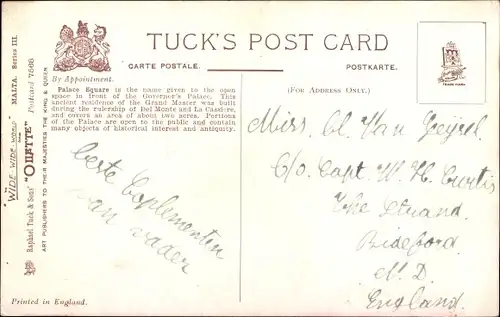 TUCK'S POST CARD
CARTE POSTALE.
POSTKARTE.
By Appointment.
(FOR ADDRESS ONLY.)
TRADE MARK
Palace Square is the name given to the open
space in front of the Governor's Palace. This
ancient residence of the Grand Master was built
during the rulership of Del Monte and La Cassiere,
and covers an area of about two acres. Portions
of the Palace are open to the public and contain
many objects of historical interest and antiquity.
"WIDE WIDE WORLD" MALTA. Series III.
Raphael Tuck & Sons' "OILETTE" Postcard 7666
ART PUBLISHERS TO THEIR MAJESTIES THE KING & QUEEN
beste Coplementen
van vader
Miss. Van
C/o. Capt. W. H. Curtis
The Strand
Bideford
N. D
England
Printed in England.